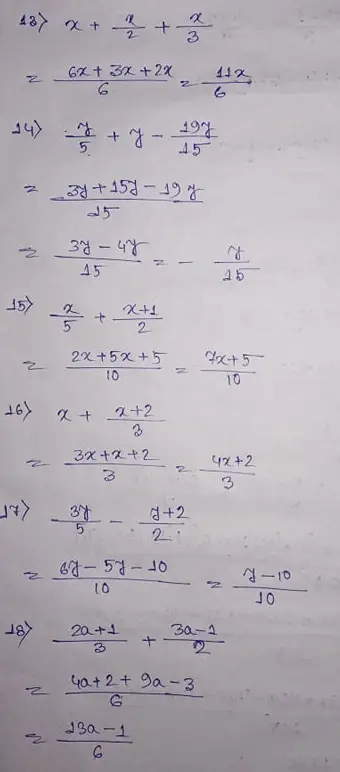 13) x + x/2 + x/3
= 6x + 3x + 2x / 6 = 11x / 6
14) y/5 + y - 19y/15
= 3y + 15y - 19y / 15
= 3y - 4y / 15 = - y/15
15) x/5 + x+1/2
= 2x + 5x + 5 / 10 = 7x + 5 / 10
16) x + x+2/3
= 3x + x + 2 / 3 = 4x + 2 / 3
17) 3y/5 - y+2/2
= 6y - 5y - 10 / 10 = y - 10 / 10
18) 2a+1/3 + 3a-1/2
= 4a + 2 + 9a - 3 / 6
= 13a - 1 / 6